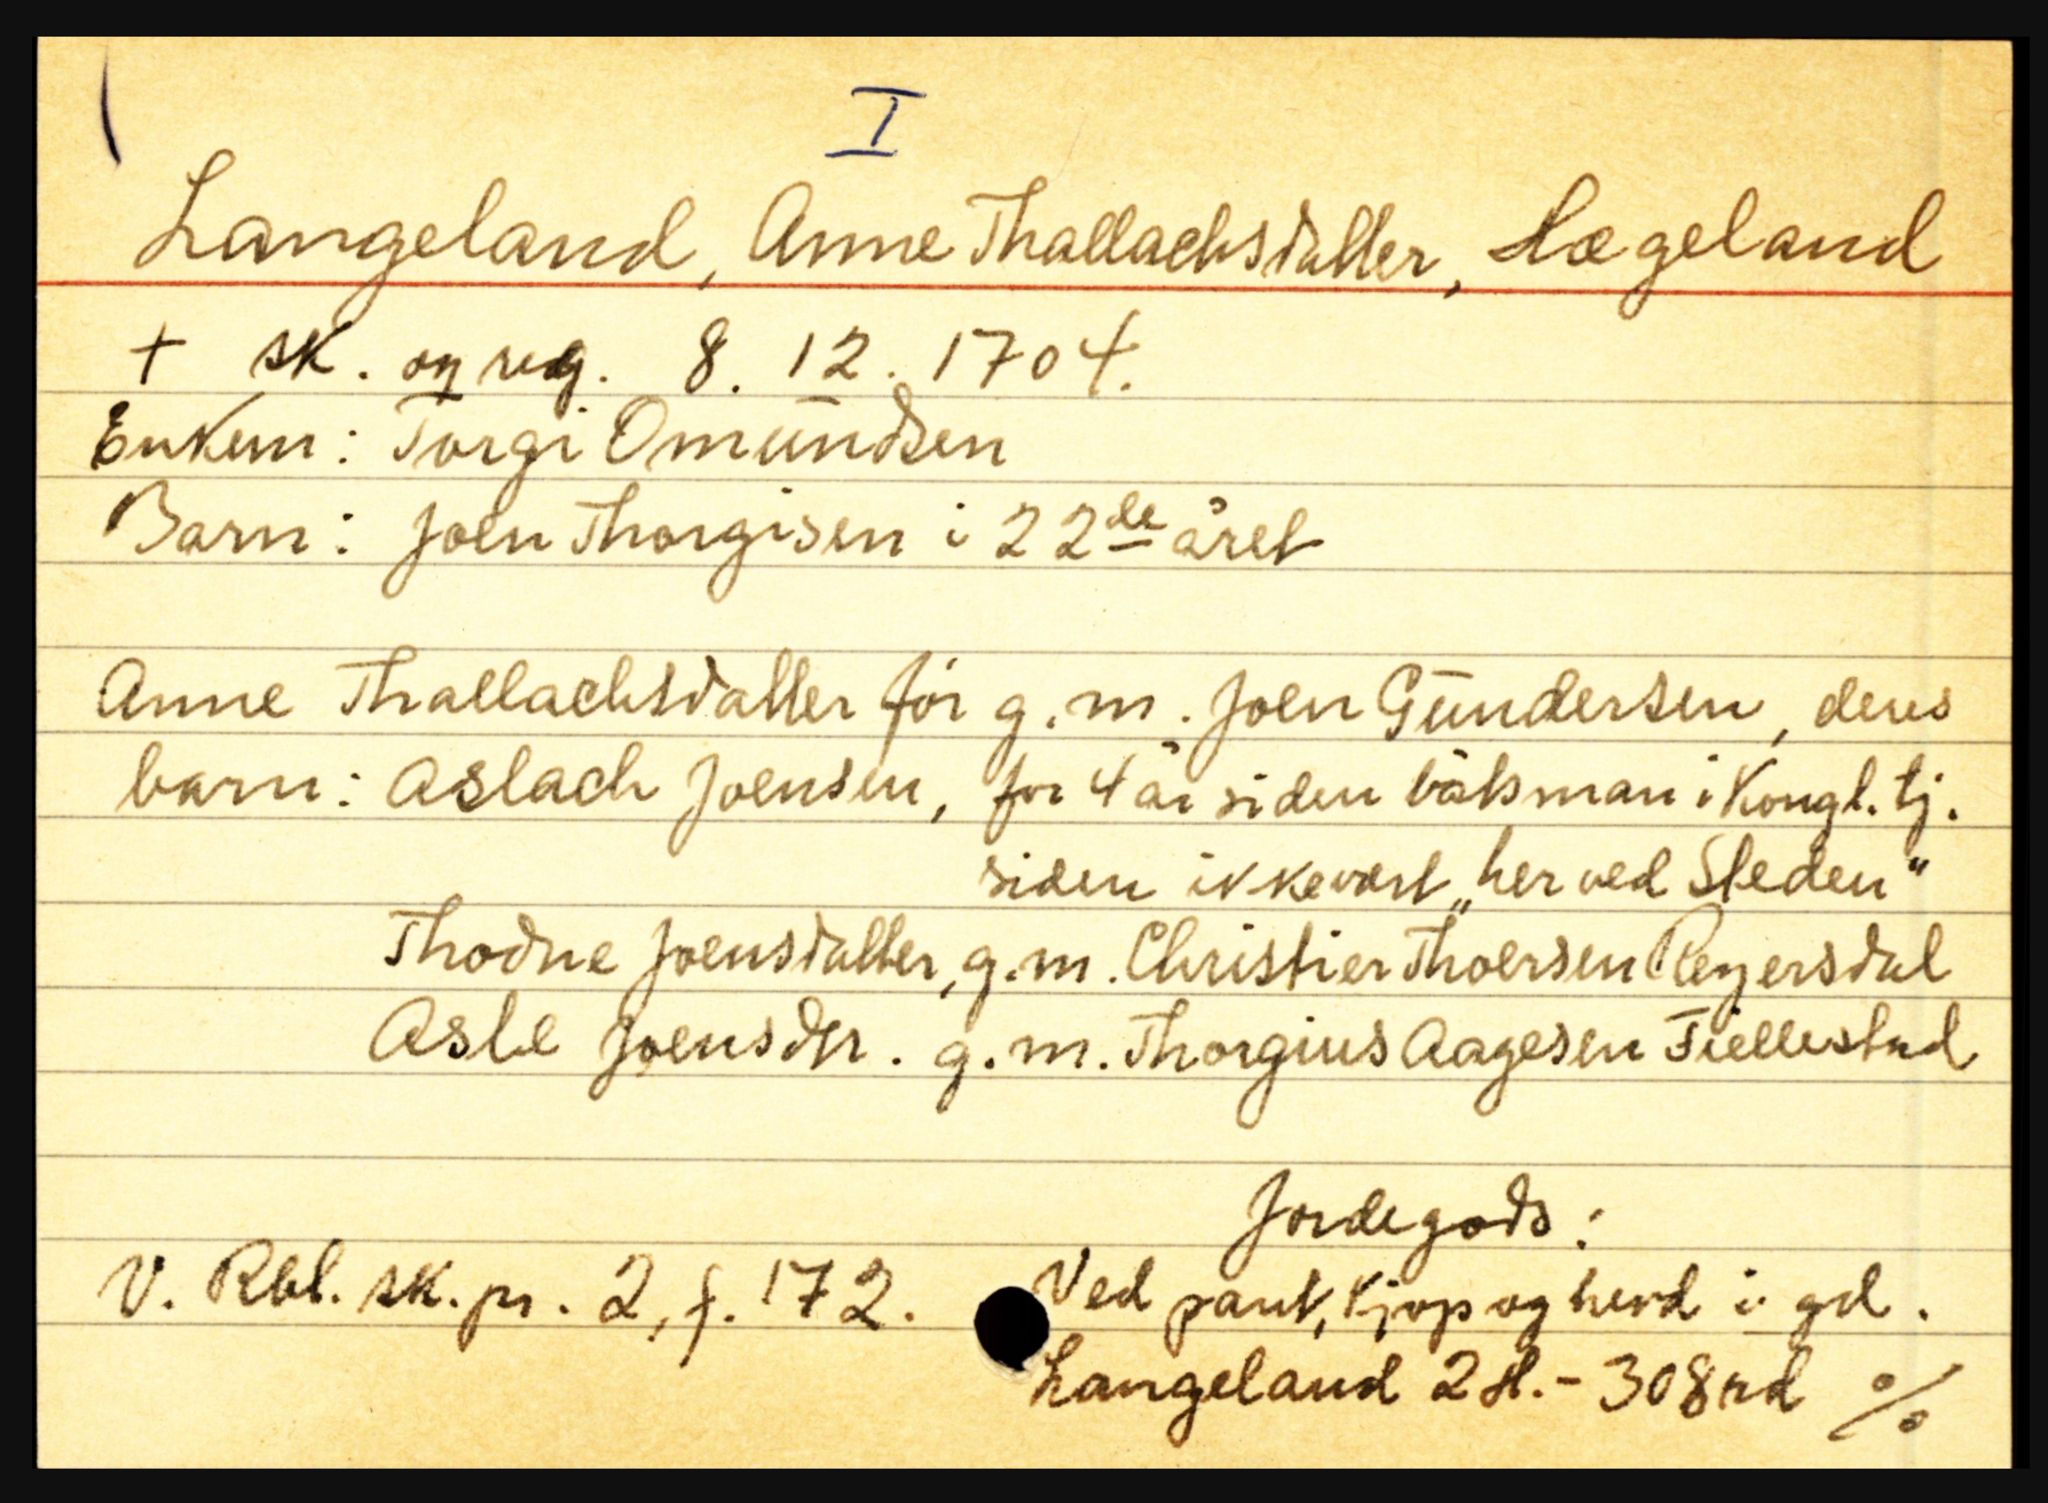 I
Langeland, Anne Thallachsdatter, Hægeland
+ sk. og reg. 8. 12. 1704.
Enkem: Torgi Omŭndsen
Barn: Joen Thorgisen i 22de året
Anne Thallachsdatter før g. m. Joen Gŭndersen, deres
barn: Aslach Joensen, for 4 år siden båtsman i Kongl. tj.
siden ikke vært „her ved Steden"
Thodne Joensdatter, g. m. Christier Thoersen Reyersdal
Asle Joensdtr. g. m. Thorgius Aagesen Fiellestad
Jordegods:
V. Rbl. sk. pr. 2, f. 172. Ved pant, kjøp og hevd i gd.
Langeland 2 H. - 308 rd %